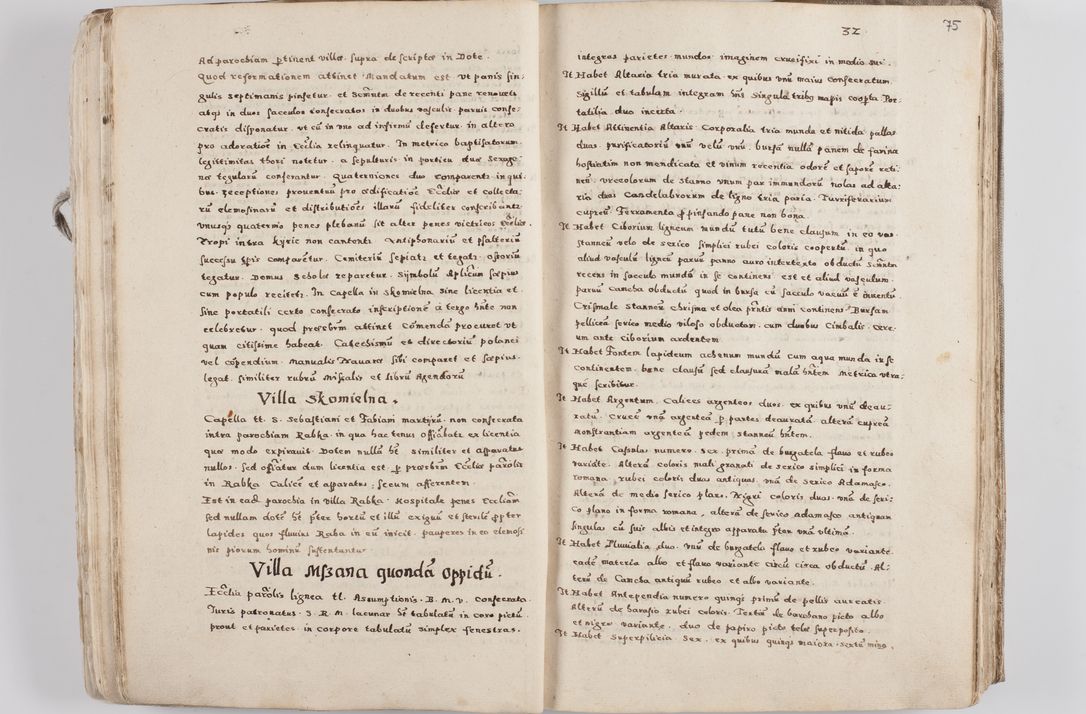 Ad parochiam pertinent villæ supra descriptæ in Dote.
Quod reformationem attinet Mandatum est vt panis sin,
gulis septimanis pinsetur et Sacmentū de recenti pane renouetur
atqȝ in duos sacculos consecratos in duobus vasculis paruis conse,
cratis disponatur vt cū in vno ad infirmū defertur in altero
pro adoratioē in Ecclia relinquatur. In metrica baptisatorum
legittimitas thori notetur a sepulturis in porticu duæ sexage,
na tegularū conserantur. Quaterniones duo comparentur in qui
bus receptiones prouentuū pro ædificatioē Eccliæ et collecta,
rū elemosinarū et distributioēs illarū fideliter conscribantur
vnusqȝ quaternio penes plebanū sit alter penes victricos Eccliæ.
Tropi intra kyrie non cantentur Antiphonariū et psalteriū
successu tpis comparētur. Cemiteriū sepiatur et tegatur ostoriū
tegatur. Domus Scholæ reparetur. Symbolū Aplicum sæpius
cum populo recitetur. In capella in Skomielna sine licentia et
sine portatili certo consecrato inscriptionē a tergo hnte non
celebretur. quod presbrm attinet Cōmendā procuret vt
quam citissime habeat. Catechismū et directoriū polanci
vel cōpendium manualis Nauarræ sibi comparet et sæpius
legat similiter rubricā Missalis et librū Agendorū
Villa Skomielna.
Capella tt. S. Sebastiani et Fabiani martyrū non consecrata
intra parochiam Rabka in qua hactenus offiābatur ex licentia
quæ modo expirauit. Dotem nullā ht similiter et apparatus
nullos. sed offiātur dum licentia est per presbrm Eccliæ parolis
in Rabka Calicē et apparatus secum afferentem.
Est in eadē parochia in villa Rabka Hospitale penes Eccliam
sed nullam dotē ht præter hortū et illū exiguū et sterilē propter
lapides quos fluuius Raba in eū inicit. pauperes in eo elemosi
nis piorum hominū sustentantur
Villa Mszana quondā oppidū.
Ecclia parolis lignea tt. Assumptionis. B. M. V. consecrata
Iuris patronatus. S. R. M. lacunar ht tabulatū in coro pictū
prout et parietes. in corpore tabulatū simplex fenestras.
32
75
integras parietes mundos imaginem crucifixi in medio sui.
It Habet Altaria tria murata ex quibus vnū maius consecratum
sigillū et tabulam integram hns singula tribus mapis coopta Por,
tatilia duo incerta.
It Habet Attinentia Altaris. Corporalia tria munda et nitida pallas
duas. purificatoriū vnū velū vnū bursā nullā panem de farina
hostiatim non mendicata et vinum recentia odorē et saporē reti,
nent vrceolorum de stanno vnum par immundorū nolas ad alta,
ria duas Candelabrorum de ligno tria paria. Turriferarium
cupreū Ferramenta pro pinsando pane non bona.
It Habet Ciborium ligneum mundū tutū bene clausum in eo vas
stanneū velo de serico simplici rubei coloris coopertū in quo
aliud vasculū ligneū paruū panno auro intertexto obductū Sacmntū
recens in sacculo mundū in se continens est et aliud vasculum
paruū Camcha obductū quod in bursa cū sacculo vacuū ē inuentū
Crismale Stanneū chrisma et olea prntis anni continens Bursam
pelliceā serico medio viloso obductam cum duobus Cimbalis. cere,
um ante Ciborium ardentem
It Habet Fontem lapideum achenum mundū cum aqua munda in se
continentem bene clausū sed clausurā malā hntem metrica vtra,
quē scribitur.
It Habet Argentum. Calices argenteos duos ex quibus vnū deau,
ratū. Crucē vnā argenteā per partes deauratā alterā cupreā
Monstrantiam argenteā pedem stanneū hntem.
It Habet Casulas numero sex. primā de burgatela flauo et rubeo
variatē. Alterā coloris mali granati de serico simplici in forma
romana rubei coloris duas antiquas vnā de serico Adamasco.
Alterā de medio serico plano. Nigri coloris duas. vnā de seri,
co plano in forma romana, alterā de serico adamasco antiquam
singulas cū suis albis et integro apparatu præter vnā vltimā.
It Habet Pluuialia duo vnū de burgatela flauo et rubeo variante
eadē materia albo et flauo variante circū circa obductū. Al,
terū de Camcha antiquū rubeo et albo variante.
It Habet Antependia numero quinqȝ primū de pellis aureatis.
Alterū de harasio rubei coloris. Tertiū de barchano picto albo
et nigro variante. duo de papiro picto telæ superposito.
It Habet Superpilicia Sex. ex quibus quinqȝ maiora. sextū minꝰ.